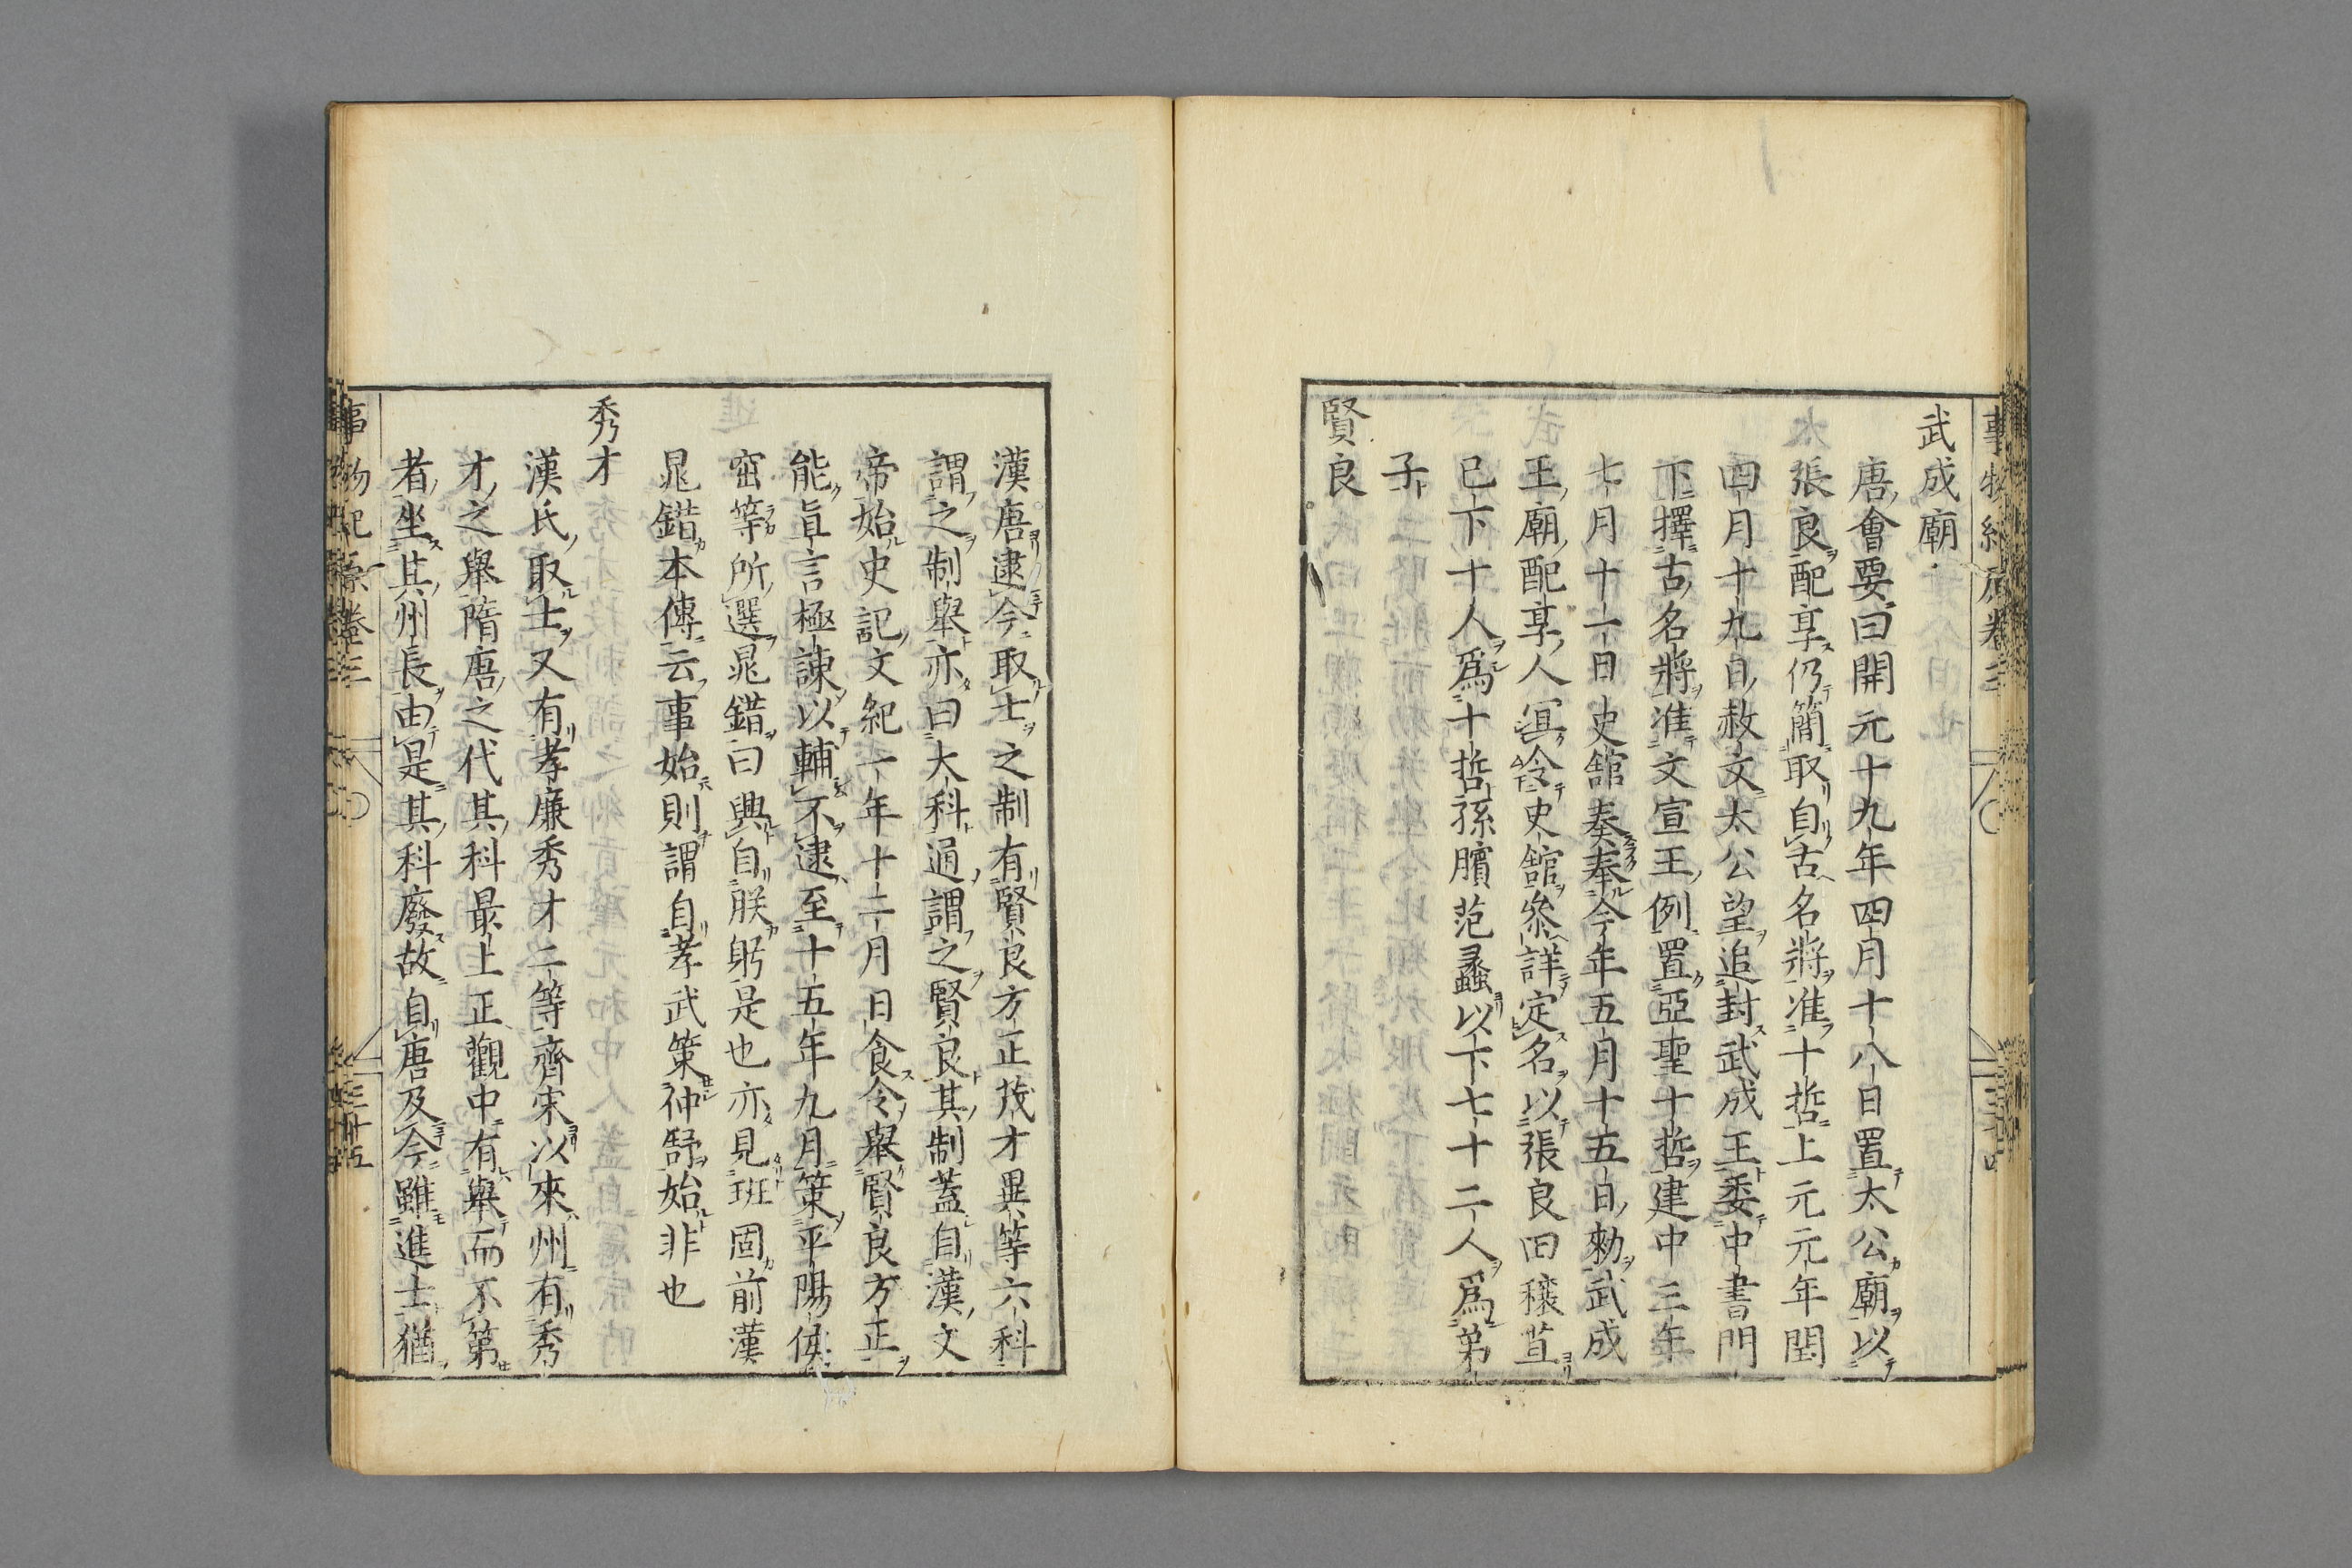 武成廟
唐會要曰開元十九年四月十八日置太公廟以
張良配享仍簡取自古名將准十哲上元元年閏
四月十九日赦文太公望追封武成王委中書門
下擇古名將准文宣王例置亞聖十哲建中三年
七月十一日史舘奏奉今年五月十五日勑武成
王廟配享人冝令史舘叅詳定名以張良田穰苴
已下十人爲十哲孫臏范蠡以下七十二人爲弟
子
賢良
漢唐逮今取士之制有賢良方正茂才異等六科
謂之制舉亦曰大科通謂之賢良其制蓋自漢文
帝始史記文紀一年十二月日食令舉賢良方正
能直言極諫以輔不逮至十五年九月策平陽侯
窋等所選晁錯曰興自朕躬是也亦見班固前漢
晁錯本傳云事始則謂自孝武策仲舒始非也
秀才
漢氏取士又有孝廉秀才二等齊宋以來州有秀
才之舉隋唐之代其科最上正觀中有舉而不第
者坐其州長由是其科廢故自唐及今雖進士猶
事物紀原卷三
三十五